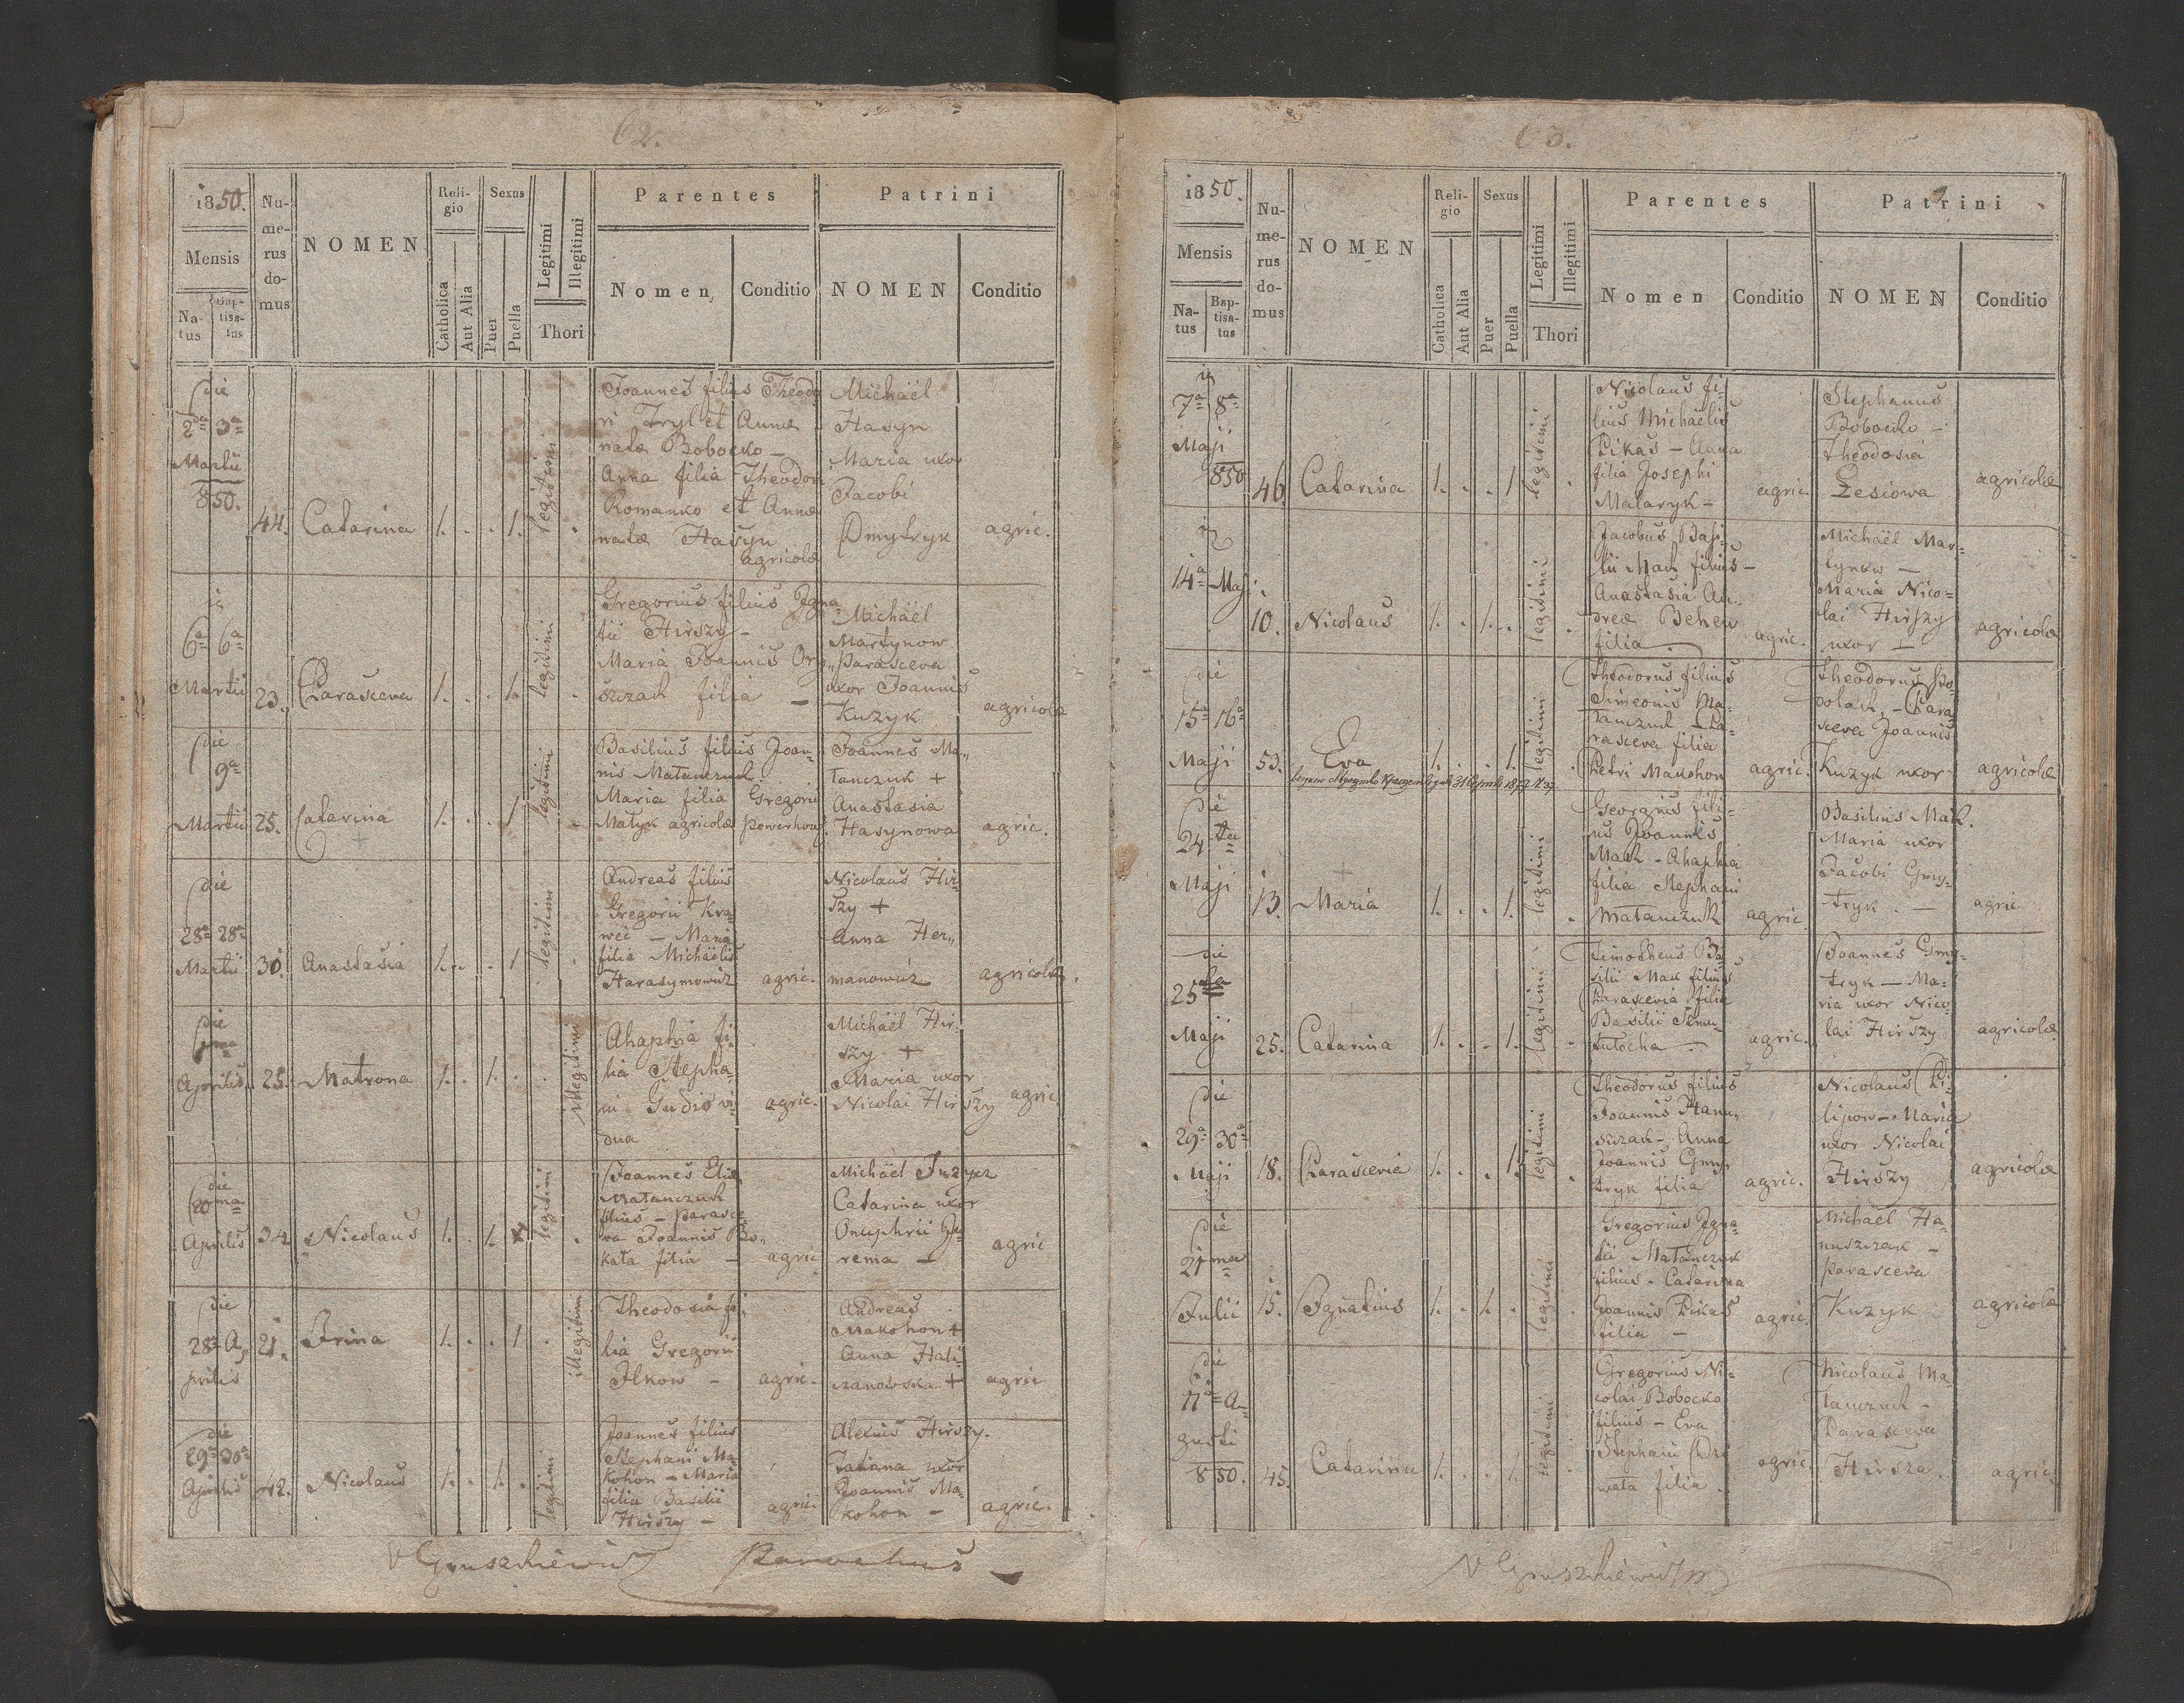 62.
1850.
Mensis
Natus
Baptisatus
Numerus domus
NOMEN
Religio
Catholica
Aut Alia
Sexus
Puer
Puella
Legitimi
Illegitimi
Thori
Parentes
Nomen
Conditio
Patrini
NOMEN
Conditio
die
2da 3a
Martii
850.
44.
Catarina
1. . . 1.
legitimi
Joannes filius Theodo
ri Tryl et Annæ
natæ Bobocko -
Anna filia Theodori
Romanko et Annæ
natæ Hasyn
agricolæ
Michaël
Hasyn
Maria uxor
Jacobi
Dmytryk
agric.
6a 6a
Martii
23.
Parasceva
1. . . 1.
legitimi
Gregorius filius Igna
tii Hirszy -
Maria Joannis
filia -
Michaël
Martynow
Parasceva
uxor Joannis
Kuzyk
agricolæ
die
9a
Martii
25.
Catarina
1. . . 1
legitimi
Basilius filius Joan
nis Matanczuk
Maria filia Gregorii
Matyk agricolæ
Joannes Ma
tanczuk +
Anastasia
Hasynowa
agric.
die
28a 28a
Martii
30.
Anastasia
1. . . 1
legitimi
Andreas filius
Gregorii Kra
weć - Maria
filia Michaëlis
Harasymowicz
agric.
Nicolaus Hir
szy +
Anna Her„
manowicz
agricolæ.
die
Aprilis
25.
Matrona
1. . 1. .
illegitimi
Ahaphia fi
lia Stepha
ni Gudio vi
dua
agric.
Michaël Hir
szy +
Maria uxor
Nicolai Hirszy
agric
die
20ma
Aprilis
34
Nicolaus
1. . 1.
legitimi
Joannes Eliæ
Matanczuk
filius - Parasce
va Joannis Bo„
kata filia -
agric
Michaël
Catarina uxor
Onuphrii
rema -
agric
die
28a A„
prilis
21.
Irina
1. . . 1
illegitimi
Theodosia fi
lia Gregorii
Ilkow -
agric.
Andreas
Makohon +
Anna Hali
czanowska +
agric
die
29a 30a
Aprilis
42.
Nicolaus
1. . 1. .
legitimi
Joannes filius
Stephani Ma
kohon - Maria
filia Basilii
Hirszy -
agric.
Alexius Hirszy.
Tatiana uxor
Joannis Ma
kohon -
agric.
Gruszkiewicz Parochus
63.
1850.
Mensis
Natus
Baptisatus
Numerus domus
NOMEN
Religio
Catholica
Aut Alia
Sexus
Puer
Puella
Legitimi
Illegitimi
Thori
Parentes
Nomen
Conditio
Patrini
NOMEN
Conditio
7a 8a
Maji
850
46.
Catarina
1. . . 1.
legitimi
Nicolaus fi
lius Michaëlis
Pikas - Anna
filia Josephi
Malaryk -
agric.
Stephanus
Bobocko -
Theodosia
Lesiowa
agricolæ
14a Maji.
10.
Nicolaus
1. . 1. .
legitimi
Jacobus Basi
lii Mach filius -
Anastasia An
dreæ Behen
filia.
agric.
Michaël Mar=
tynow -
Maria Nico=
lai Hirszy
uxor -
agricolæ
die
15a 16a
Maji
53.
Eva
1. . . 1.
legitimi
Theodorus filius
Simeonis Ma
tanczuk - Pa
rasceva filia
Petri Makohon
agric.
Theodorus Po
polach, - Para
sceva Joannis
Kuzyk uxor
agricolæ
die
24ta
Maji
13.
Maria
1. . . 1.
legitimi
Georgius fili-
us Joannis
Mach - Ahaphia
filia Stephani
Matanczuk
agric.
Basilius Mak.
Maria uxor
Jacobi Gmy-
tryk. -
agric
die
25ta
Maji
25.
Catarina
1. . . 1.
legitimi
Timotheus Ba
silii Mak filius
Parascevia filia
Basilii
agric.
Joannes Gmy-
tryk - Ma=
ria uxor Nico
lai Hirszy
agricolæ
die
29a 30a
Maji
18.
Parascevia
1. . . 1.
legitimi
Theodorus filius
Joannis Hanu„
szczak - Anna
Joannis Gmy
tryk filia
agric.
Nicolaus Pi
lipow - Maria
uxor Nicolai
Hirszy
agricolæ
die
21ma
Julii
15.
Ignatius
1. . 1. .
legitimi
Gregorius Igna
tii Matanczuk
filius - Catarina
Joannis Pikas
filia -
agric.
Michaël Ha
nuszczak -
Parasceva
Kuzyk
agricolæ
die
11a Au
gusti
850.
45.
Catarina
1. . . 1.
legitimi
Gregorius Ni-
colai Bobocko
filius - Eva
Stephani
filia.
agric.
Nicolaus Ma
tanczuk -
Parasceva
Hirsza.
agric.
Gruszkiewicz